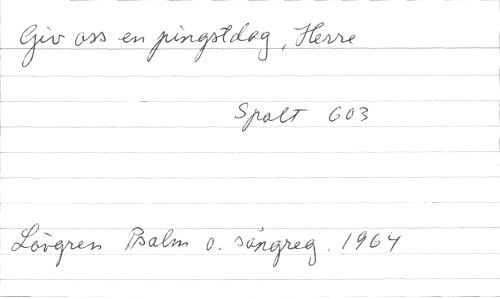 Giv oss en pingstdag, Herre
Spalt 603
Lövgren Psalm o. sångreg. 1964